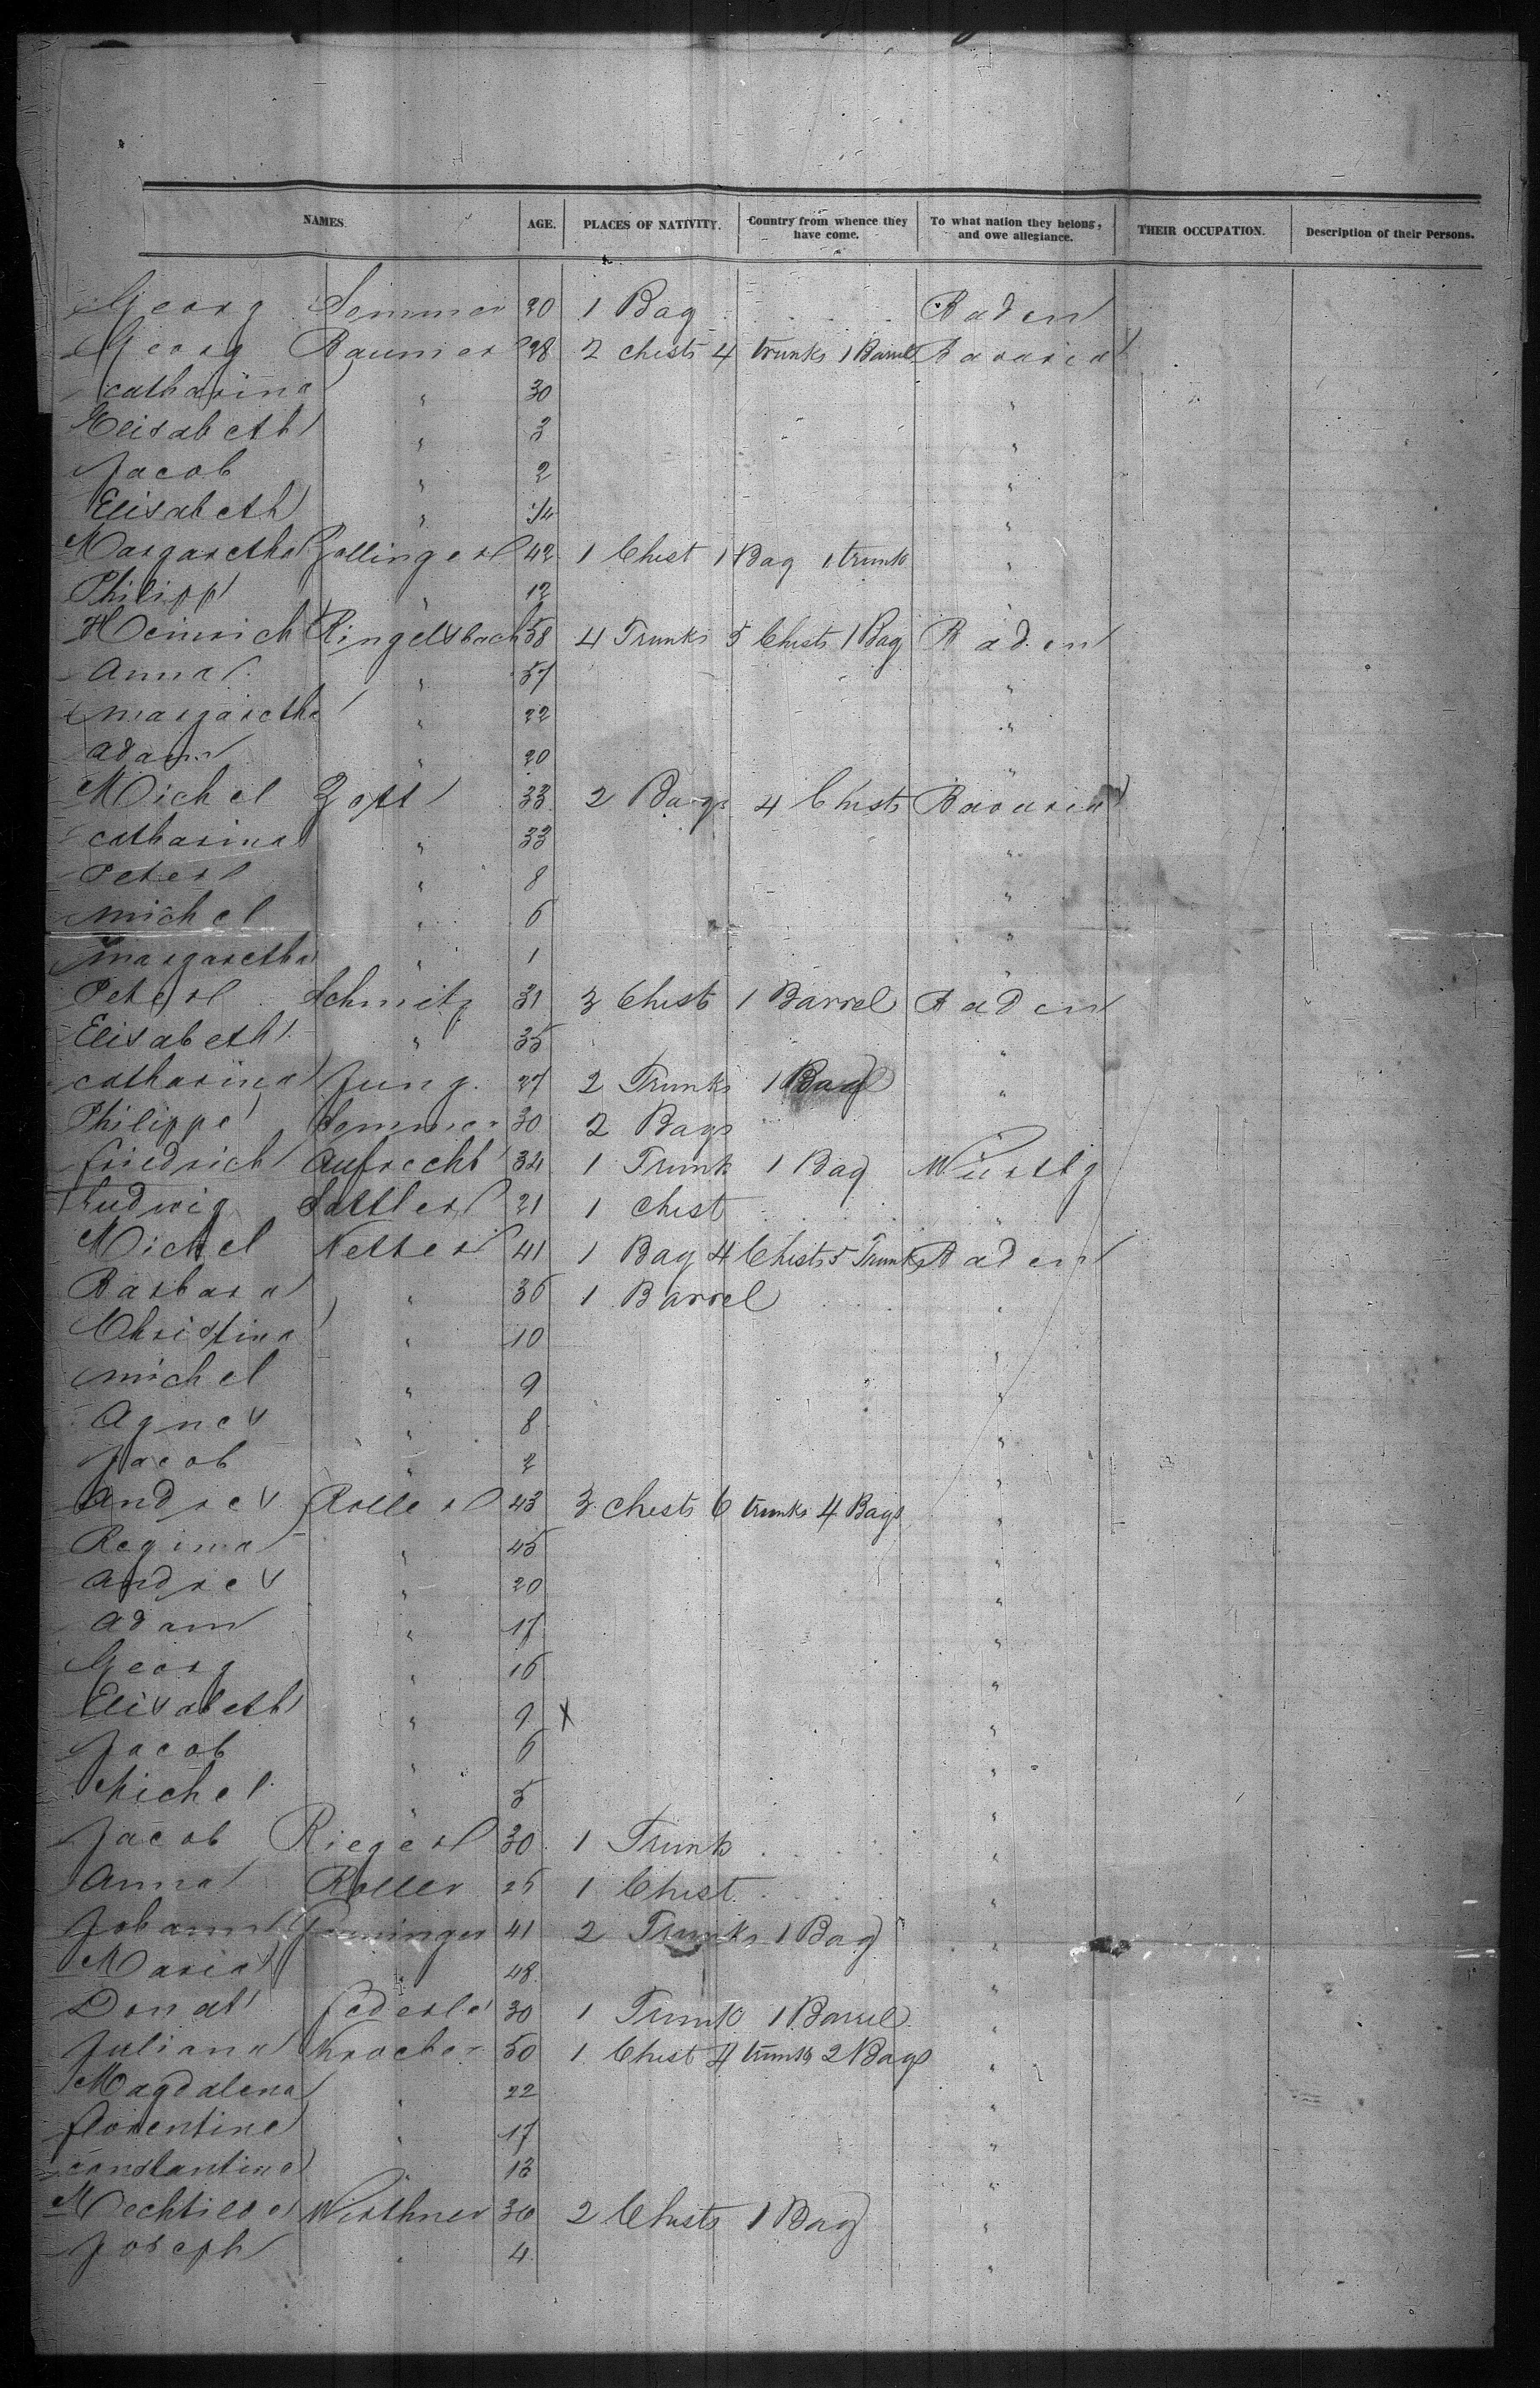 NAMES. AGE. PLACES OF NATIVITY. Country from whence they have come. To what nation they belong, and owe allegiance. THEIR OCCUPATION. Description of their Persons.
Georg Sommer 30 1 Bag Baden
Georg Baumer 28 2 chests 4 trunks 1 Barrel Bavaria
Catharina " 30 "
Elisabeth " 3 "
Jacob " 2 "
Elisabeth " "
Margaretha Zollinger 42 1 Chest 1 Bag 1 trunk "
Philipp " 12 "
Heinrich Ringelsbach 58 4 Trunks 5 Chests 1 Bag Baden
Anna " 57 "
Margaretha " 22 "
Adam " 20 "
Michel Zott 33 2 Bags 4 Chests Bavaria
Catharina " 33 "
Peter " 8 "
Michel " 6 "
Margaretha " 1 "
Peter Schmitz 31 3 Chests 1 Barrel Baden
Elisabeth " 35 "
Catharina Jung 27 2 Trunks 1 Bag "
Philippe Sommer 30 2 Bags
Friedrich Aufrecht 34 1 Trunk 1 Bag Würtbg
Ludwig Sattler 21 1 chest "
Michel Netter 41 1 Bag 4 Chests 5 Trunks Baden
Barbara " 36 1 Barrel "
Christina " 10 "
Michel " 9 "
Agnes " 8 "
Jacob " 2 "
Andres Roller 43 3 chests 6 trunks 4 Bags "
Regina " 45 "
Andres " 20 "
Adam " 17 "
Georg " 16 "
Elisabeth " 9 X "
Jacob " 6 "
Michel " 5 "
Jacob Rieger 30 1 Trunk "
Anna Roller 25 1 Chest "
Johann 41 2 Trunks 1 Bag "
Maria " 48 "
Donat Federle 30 1 Trunk 1 Barrel "
Juliana 50 1 Chest 4 trunks 2 Bags "
Magdalena " 22 "
Florentine " 17 "
Constantine " 13 "
Mechtilde Wirthner 36 2 Chests 1 Bag "
Joseph " 4 "